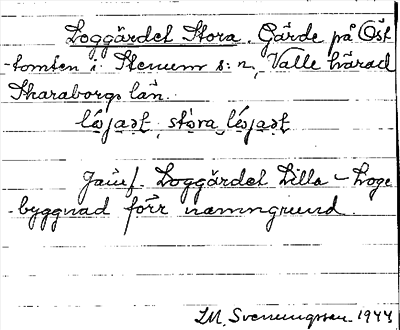 Loggärdet Stora. Gärde på Öst
-tomten i Stenum s:n, Valle härad
Skaraborgs län.
stora
Jämf. Loggärdet Lilla – Loge
-byggnad förr namngrund.
S.M. Svenungsson 1944